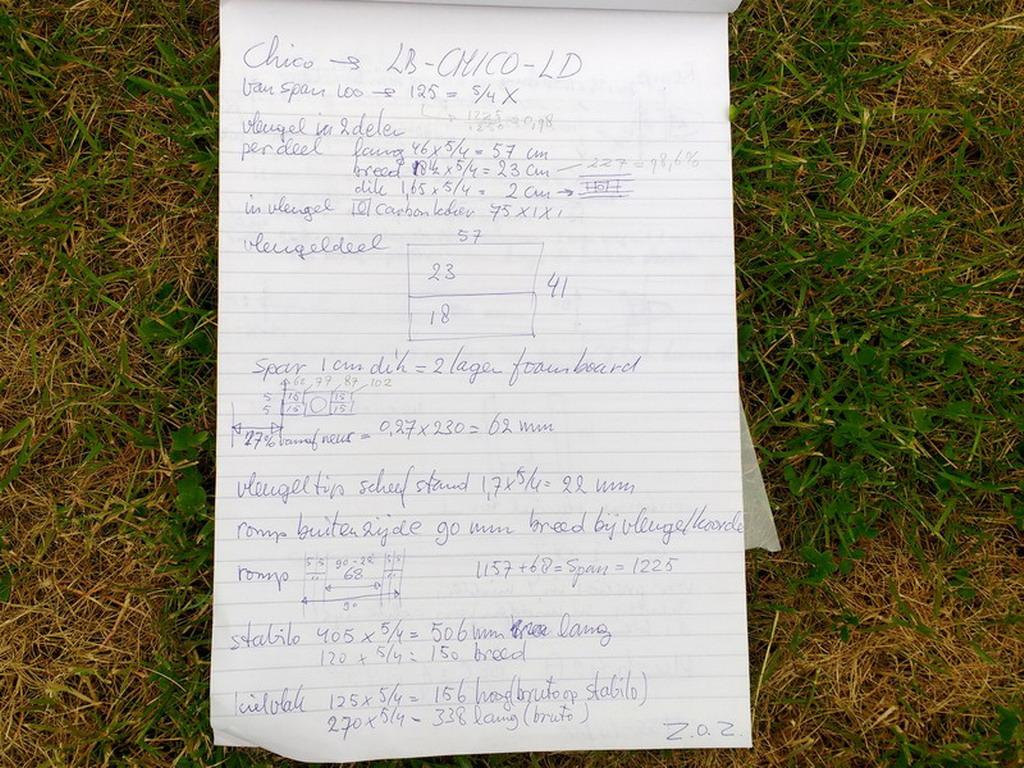 Chico → LB-CHICO-LD
van span 100 → 125 = 5/4 X
1225
1250 = 0,98
vleugel in 2 delen
per deel lang 46 x 5/4 = 57 cm
breed 18½ x 5/4 = 23 cm — 227 = 98,6%
dik 1,65 x 5/4 = 2 cm →
in vleugel carbon koker 75 x 1 x 1
vleugeldeel 57
23
41
18
Spar 1 cm dik = 2 lagen foamboard
62 77 87 102
5 15 15
5 15 15
27% vanaf neus = 0,27 x 230 = 62 mm
vleugeltip scheef stand 1,7 x 5/4 = 22 mm
romp buitenzijde 90 mm breed bij vleugel/koorde
5 5 90-22 5 5
romp 68 1157 + 68 = Span = 1225
90
stabilo 405 x 5/4 = 506 mm lang
120 x 5/4 = 150 breed
kielvlak 125 x 5/4 = 156 hoog (bruto op stabilo)
270 x 5/4 = 338 lang (bruto)
Z.O.Z.